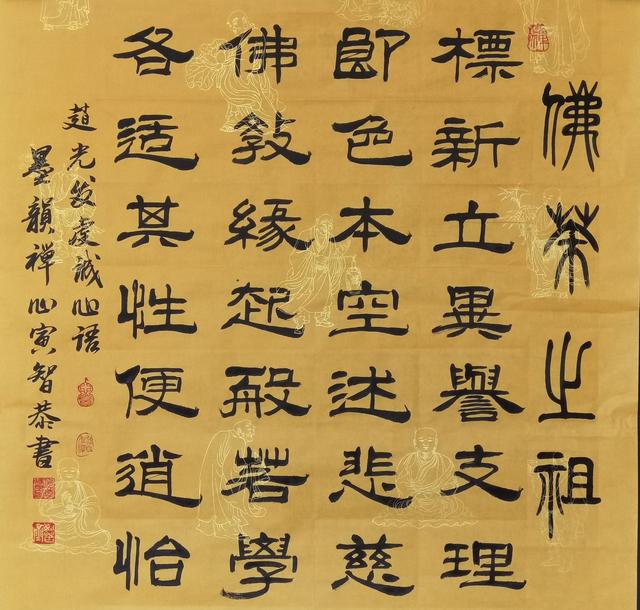 佛茶之祖
標新立異譽支理
即色本空述悲慈
佛教緣起般若學
各适其性便逍怡
趙光發虔誠心語
墨韻禪心寅智恭書